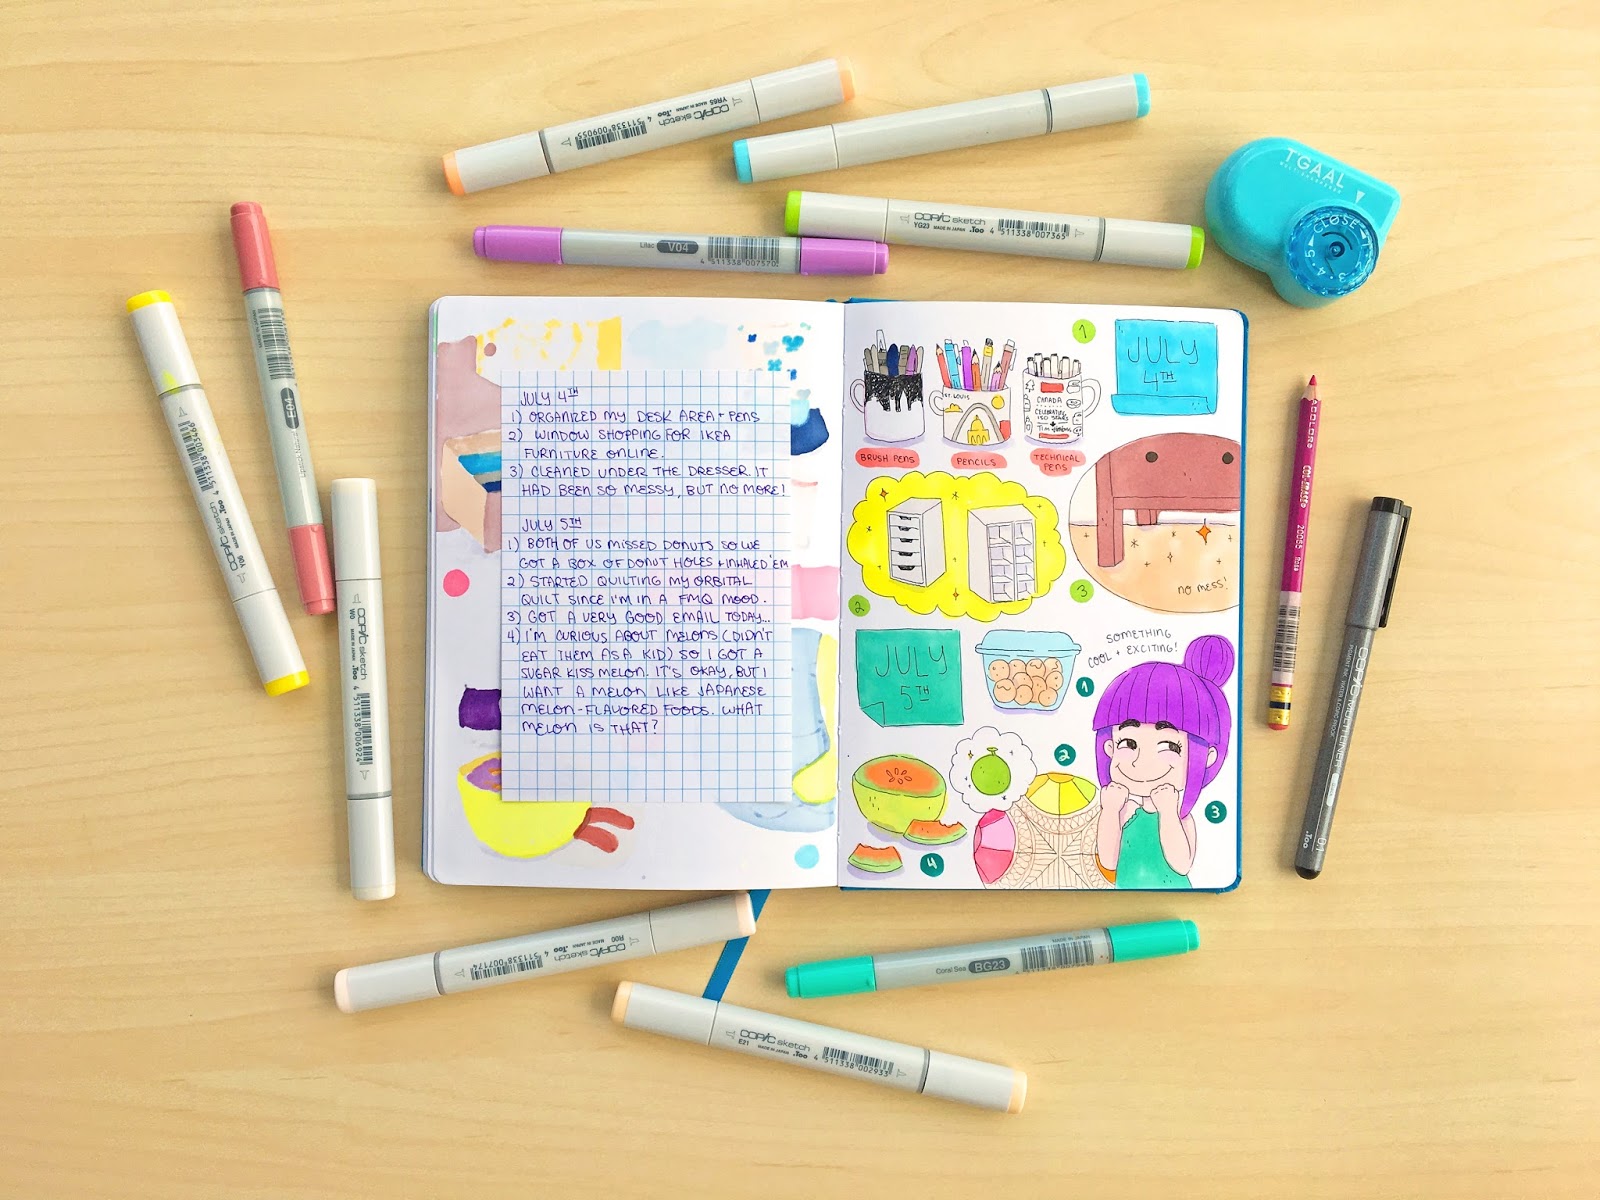 COPIC sketch
YR65 MADE IN JAPAN .Too
4 511338 009055
COPIC sketch
YG23 MADE IN JAPAN .Too 4 511338 007365
Lilac V04
4 511338 007570
TGAAL
CLOSE
E04
COPIC sketch
Y06
4 511338 003466
COPIC sketch
W0 MADE IN JAPAN .Too
4 511338 006924
JULY 4TH
1) ORGANIZED MY DESK AREA + PENS
2) WINDOW SHOPPING FOR IKEA
FURNITURE ONLINE.
3) CLEANED UNDER THE DRESSER. IT
HAD BEEN SO MESSY, BUT NO MORE!
JULY 5TH
1) BOTH OF US MISSED DONUTS SO WE
GOT A BOX OF DONUT HOLES + INHALED 'EM
2) STARTED QUILTING MY ORBITAL
QUILT SINCE I'M IN A FMQ MOOD.
3) GOT A VERY GOOD EMAIL TODAY...
4) I'M CURIOUS ABOUT MELONS (DIDN'T
EAT THEM AS A KID) SO I GOT A
SUGAR KISS MELON. IT'S OKAY, BUT I
WANT A MELON LIKE JAPANESE
MELON-FLAVORED FOODS. WHAT
MELON IS THAT?
1
JULY
4TH
ST. LOUIS
CANADA
CELEBRATING
150 YEARS
Tim Hortons
BRUSH PENS
PENCILS
TECHNICAL
PENS
2
3
NO MESS!
JULY
5TH
1
SOMETHING
COOL + EXCITING!
2
3
4
COL-ERASE 20055 Rose
COPIC MULTILINER
0.1 .Too
COPIC sketch
R00 MADE IN JAPAN .Too
4 511338 007174
Coral Sea BG23
COPIC sketch
E21 MADE IN JAPAN .Too 4 511338 002933